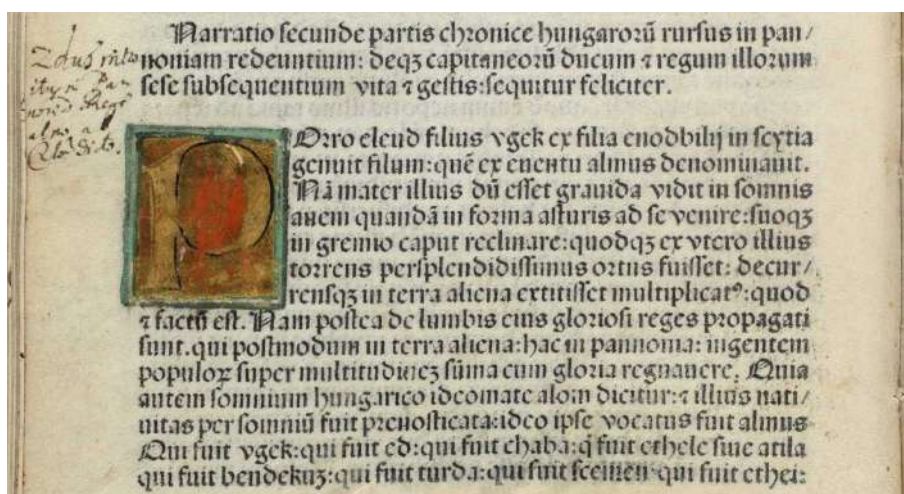 Narratio secunde partis chronice hungarorū rursus in pan/
noniam redeuntium: deqȝ capitaneorū ducum ⁊ regum illorum
sese subsequentium vita ⁊ gestis: sequitur feliciter.
POrro eleud filius vgek ex filia enodbilij in scytia
genuit filum: quē ex euentu almus denominauit.
Nā mater illius dū esset grauida vidit in somnis
auem quandā in forma asturis ad se venire: suoqȝ
in gremio caput reclinare: quodqȝ ex vtero illius
torrens persplendidissimus ortus fuisset: decur/
rensqȝ in terra aliena extitisset multiplicatꝰ: quod
⁊ factū est. Nam postea de lumbis eius gloriosi reges propagati
sunt. qui postmodum in terra aliena: hac in pannonia: ingentem
populoꝝ super multitudineȝ sūma cum gloria regnauere. Quia
autem somnium hungarico ideomate alom dicitur: ⁊ illius nati/
uitas per somniū fuit prenosticata: ideo ipse vocatus fuit almus
Qui fuit vgek: qui fuit ed: qui fuit chaba: q̄ fuit ethele siue atila
qui fuit bendekuȝ: qui fuit turda: qui fuit scemen: qui fuit ethei: